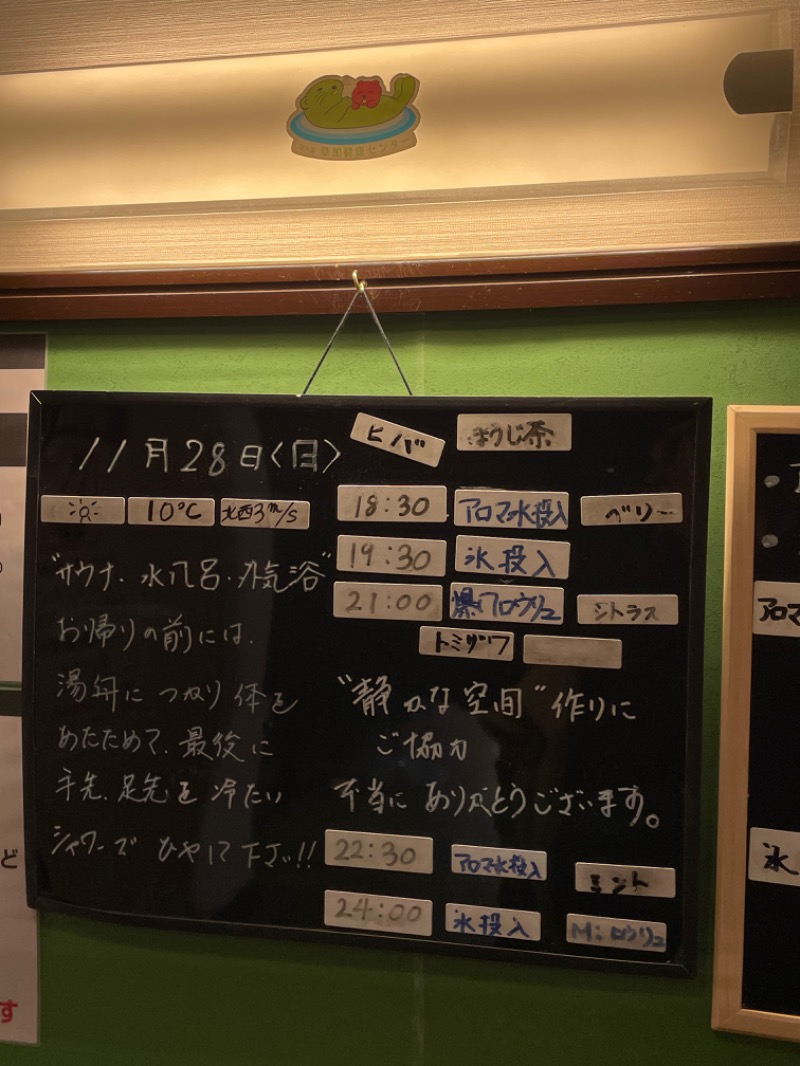 11月28日〈日〉
ヒノバ
ほうじ茶
10℃
北西3m/s
"サウナ、水風呂・外気浴"
お帰りの前には、
湯舟につかり体を
あたためて、最後に
手先、足先を冷たい
シャワーでひやして下さい!!
18:30 アロマ水投入 ベリー
19:30 氷投入
21:00 爆アロウリュ シトラス
トミザワ
"静かな空間"作りに
ご協力
本当にありがとうございます。
22:30 アロマ水投入 ミント
24:00 氷投入 M:ロウリュ
アロマ
氷
ど
す